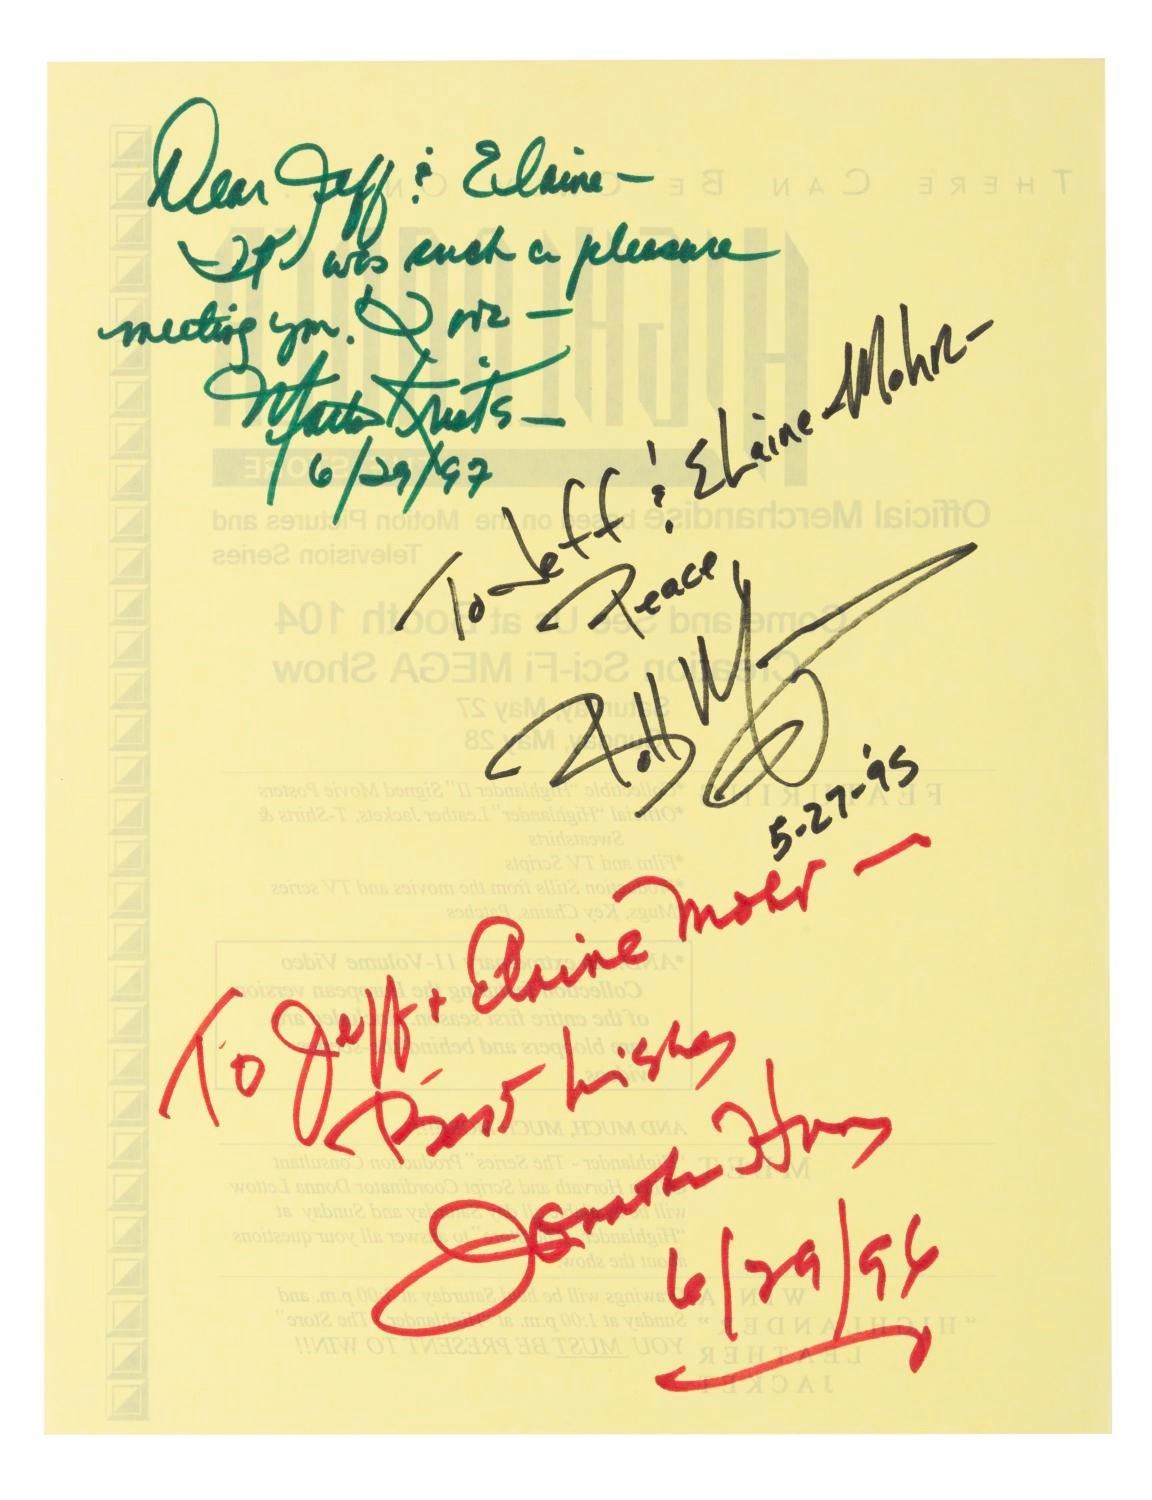 Dear Jeff & Elaine –
It was such a pleasure
meeting you. Love –
6/29/97
To Jeff & Elaine Mohr –
Peace
5-27-'95
To Jeff + Elaine Mohr –
Best Wishes
6/29/96
THERE CAN BE
HIGHLANDER
THE STORE
Official Merchandise based on the Motion Pictures and
Television Series
Come and See Us at Booth 104
Creation Sci-Fi MEGA Show
Saturday, May 27
Sunday, May 28
FEATURING
*Collectible "Highlander II" Signed Movie Posters
*Official "Highlander" Leather Jackets, T-Shirts &
Sweatshirts
*Film and TV Scripts
*Production Stills from the movies and TV series
*Mugs, Key Chains, Patches
*AND extraordinary 11-Volume Video
Collection the European version
of the entire first season.
bloopers and behind-the-scenes
AND MUCH, MUCH
MEET
"Highlander - The Series" Production Consultant
Horvath and Script Coordinator Donna Lettow
will be Saturday and Sunday at
"Highlander to answer all your questions
about the show.
WIN A
"HIGHLANDER"
LEATHER
JACKET
Drawings will be held Saturday at p.m. and
Sunday at 1:00 p.m. at "Highlander The Store"
YOU MUST BE PRESENT TO WIN!!